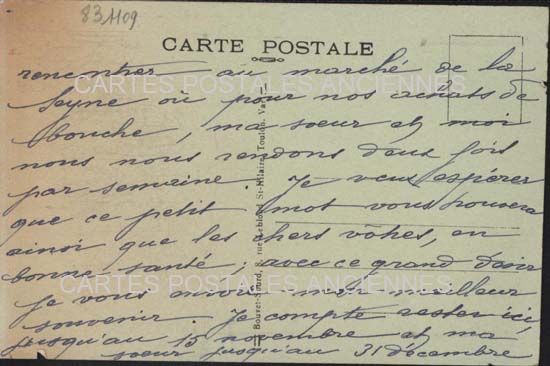 83 1109
CARTE POSTALE
rencontrer au marché de la
Seyne où pour nos achats de
bouche, ma soeur et moi
nous nous rendons deux fois
par semaine. Je veux espérer
que ce petit mot vous trouvera
ainsi que les chers vôtres, en
bonne santé; avec ce grand désir
je vous envoie mon meilleur
souvenir. Je compte rester ici
jusqu'au 15 novembre et ma
soeur jusqu'au 31 décembre
CARTES POSTALES ANCIENNES
CARTES POSTALES ANCIENNES
rue Leblond St-Hilaire, Toulon, Var